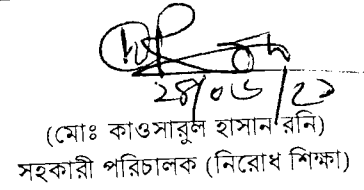 ২৪/০৬/২১
(মোঃ কাওসারুল হাসান রনি)
সহকারী পরিচালক (নিরোধ শিক্ষা)